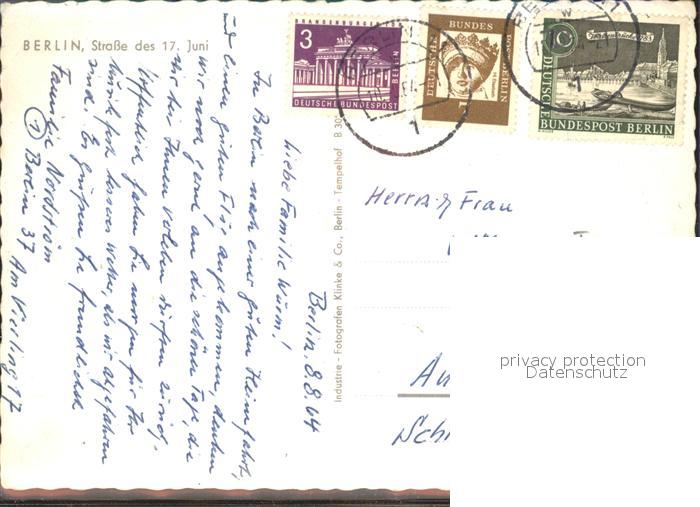 BERLIN, Straße des 17. Juni
Berlin, 8.8.64
Liebe Familie Wurm!
In Berlin nach einer guten Heimfahrt,
und einen guten Flug angekommen, denken
wir noch gern an die schönen Tage, die
wir bei Ihnen verleben durften zurück.
Hoffentlich haben Sie morgen für Ihr
besseres Wetter, als wir abgefahren
sind. Es grüßen Sie freundlichst
Familie Nordström
① Berlin 37 Am Vierling 17
Industrie - Fotografen Klinke & Co., Berlin - Tempelhof B 30
3
BRANDENBURGER TOR
BERLIN
DEUTSCHE BUNDESPOST
DEUTSCHE
BUNDES
POST BERLIN
1
DEUTSCHE
BUNDESPOST BERLIN
1
1
Herrn & Frau
Au
Sch
privacy protection
Datenschutz